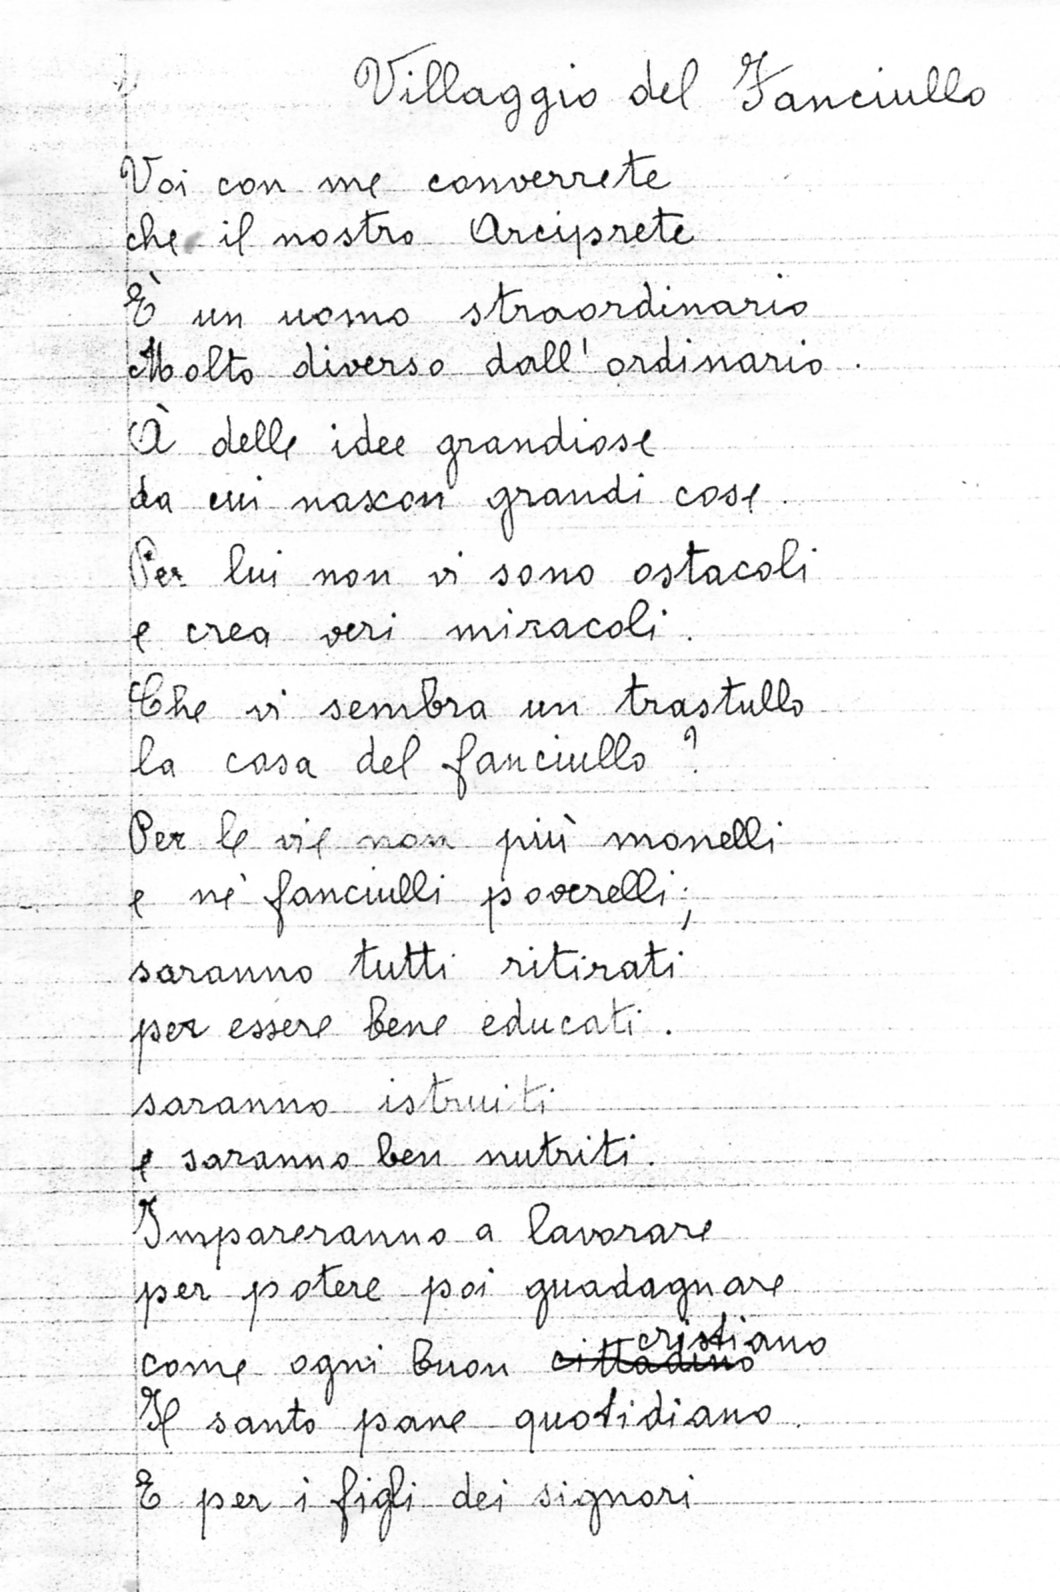 Villaggio del Fanciullo
Voi con me converrete
che il nostro Arciprete
È un uomo straordinario
Molto diverso dall'ordinario.
À delle idee grandiose
da cui nascon grandi cose.
Per lui non vi sono ostacoli
e crea veri miracoli.
Che vi sembra un trastullo
la casa del fanciullo?
Per le vie non più monelli
e nè fanciulli poverelli;
saranno tutti ritirati
per essere bene educati.
saranno istruiti
e saranno ben nutriti.
Impareranno a lavorare
per potere poi guadagnare
come ogni buon cittadino cristiano
Il santo pane quotidiano.
E per i figli dei signori